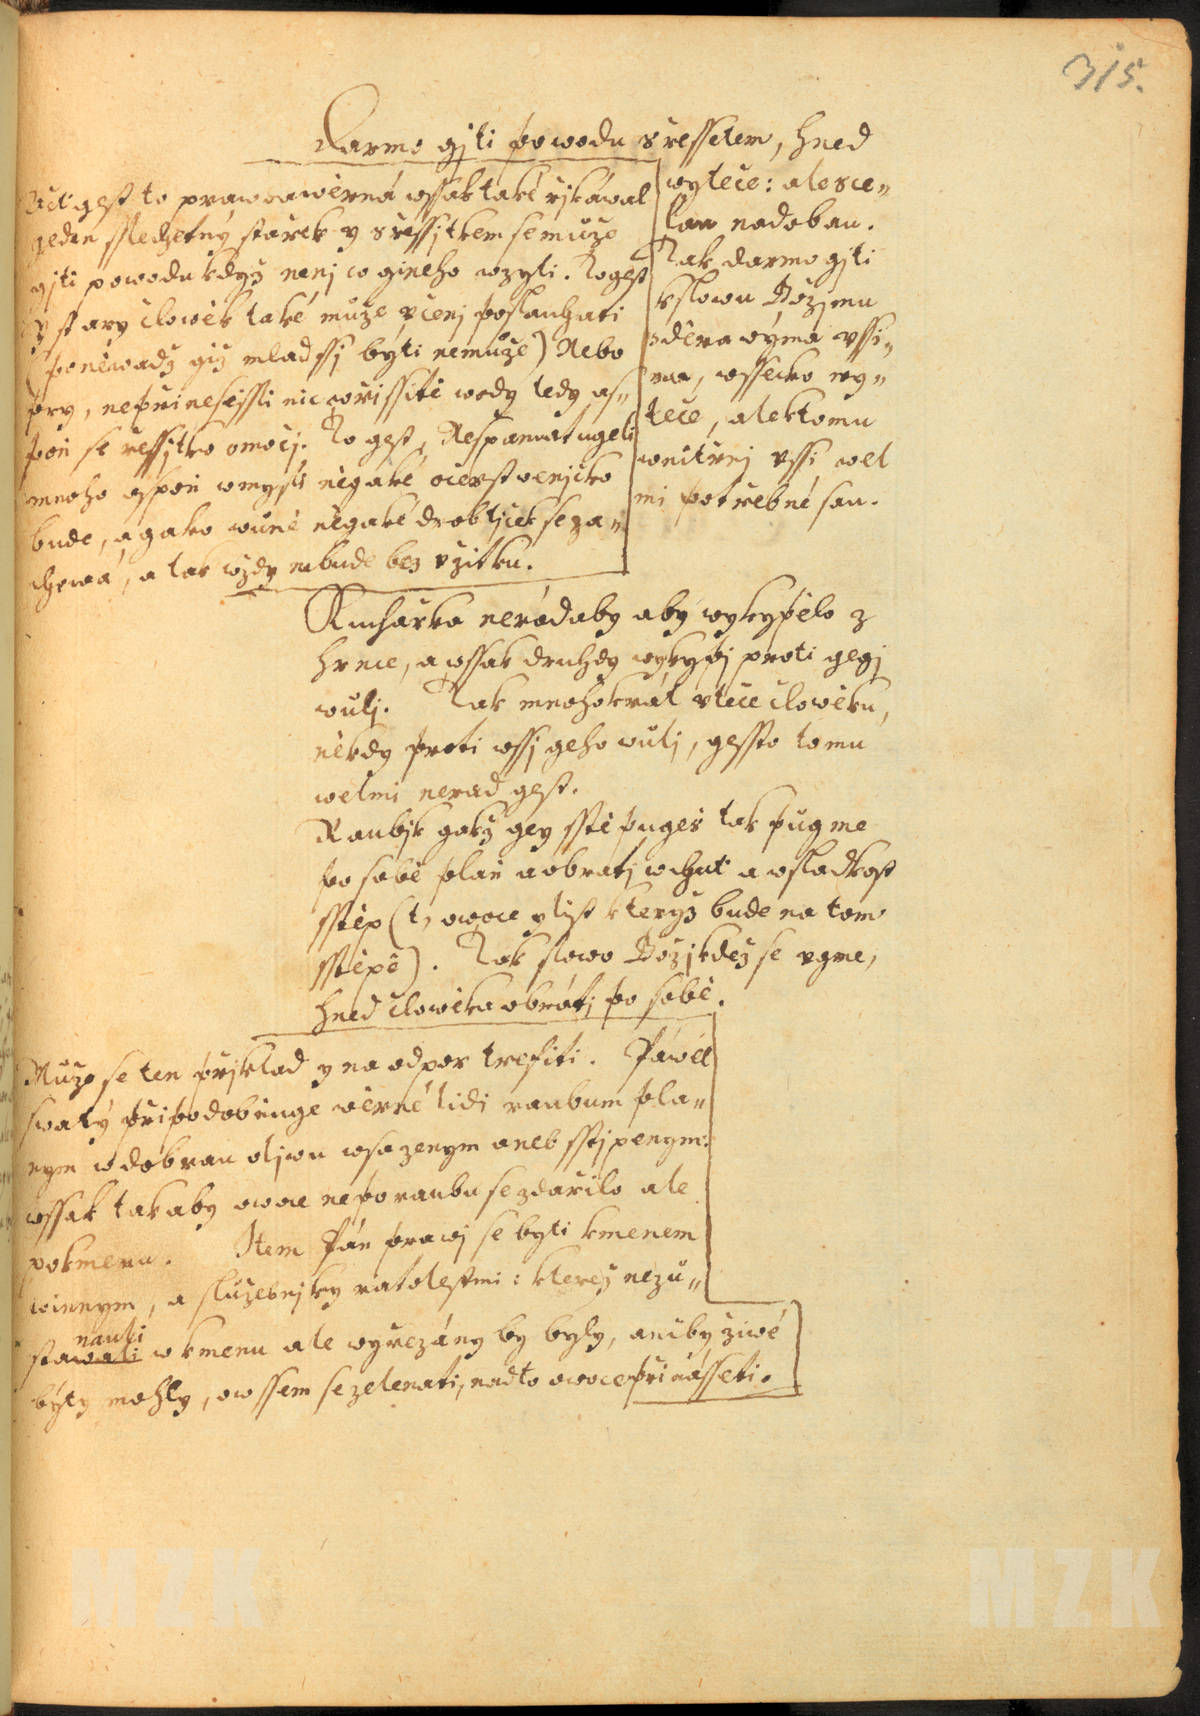 315.
Darmo gjti po wodu s ressetem, hned
wyteče: ale s ce„
lau nadobau.
Tak darmo gjti
k slowu Božjmu
s děrawýma ussi„
ma, wssecko wy„
teče, ale k tomu
wnitrnj ussi wel
mi potřebné sau.
Ač gest to prawda wěrná wssak také řjkáwal
geden sslechetný stařek y s ressjtkem se muže
gjti po wodu když nenj co gineho wzyti. To gest
y stary člowěk také muže učenj poslauchati
(poněwadž giž mladssj býti nemuže) Nebo
pry, nepřinesessli nic w rissitě wody tedy as„
poň se ressjtko omočj. To gest, Nespamatugeli
mnoho aspoň w mysli něgaké očerstwenjčko
bude, a gako wůně něgaké drobtjček se za„
chowá, a tak wždy nebude bez užitku.
Kuchařka nerádaby aby wykypělo z
hrnce, a wssak druhdy wykypj proti gegj
wuli. Tak mnohokrát uteče člowěku,
někdy proti wssj geho wuli, gessto tomu
welmi nerad gest.
Raubjk gakž gey sstěpugeš tak pugme
po sobě pláň a obratj w chut a w sladkost
sstěp (t, owoce y list kteryž bude na tom
sstěpě). Tak slowo Božj kdež se ugme,
hned člowěka obrátj po sobě.
Muže se ten přjklad y na odpor trefiti. Páwel
swatý připodobňuge wěrné lidi raubum pla„
nym w dobrau oljwu wsazenym aneb sstjpenym:
wssak tak aby owoce ne po raubu se zdařilo ale
po kmenu. Item Pán prawj se byti kmenem
winnym, a služebnjky ratolestmi: kterež nezu„
nauli
stawali w kmenu ale wyřezány by byly, aniby žiwé
býty mohly, owssem se zelenati, nadto owoce přinásseti.
MZK
MZK